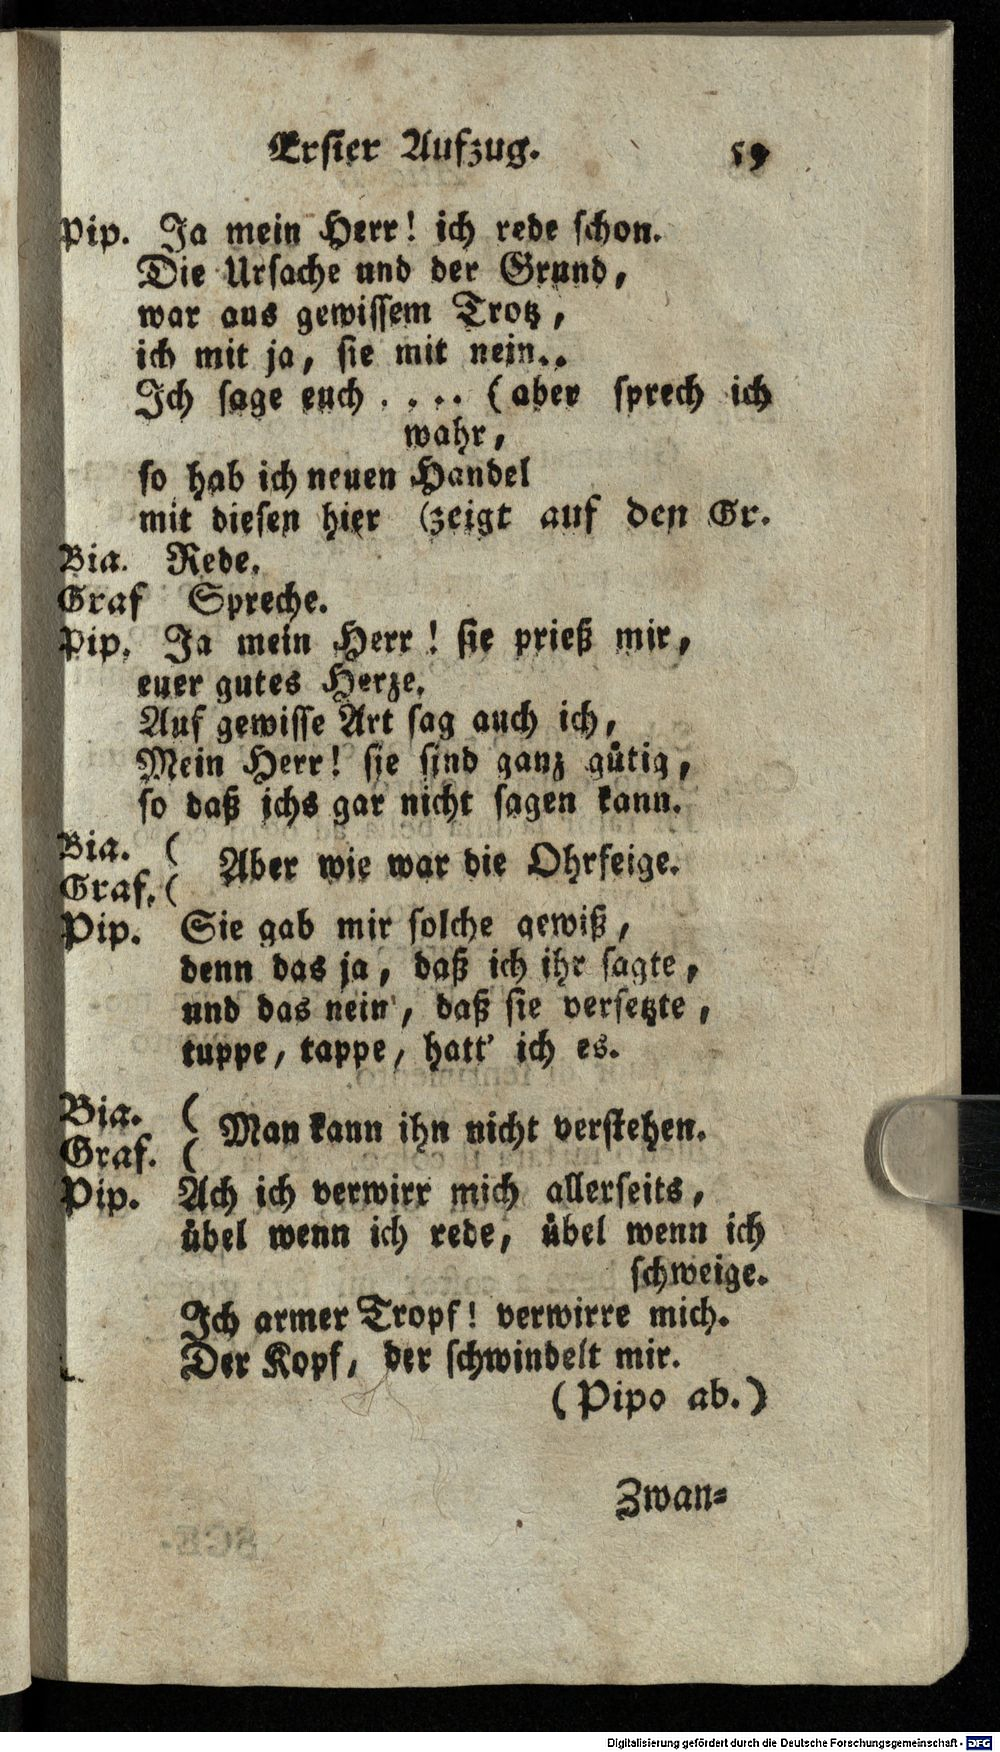 Erster Aufzug. 59
Pip. Ja mein Herr! ich rede schon.
Die Ursache und der Grund,
war aus gewissem Trotz,
ich mit ja, sie mit nein..
Ich sage euch .... (aber sprech ich
wahr,
so hab ich neuen Handel
mit diesen hier (zeigt auf den Gr.
Bia. Rede.
Graf Spreche.
Pip. Ja mein Herr! sie prieß mir,
euer gutes Herze.
Auf gewisse Art sag auch ich,
Mein Herr! sie sind ganz gütig,
so daß ichs gar nicht sagen kann.
Bia. (
Graf. ( Aber wie war die Ohrfeige.
Pip. Sie gab mir solche gewiß,
denn das ja, daß ich ihr sagte,
und das nein, daß sie versetzte,
tuppe, tappe, hatt' ich es.
Bia. (
Graf. ( Man kann ihn nicht verstehen.
Pip. Ach ich verwirr mich allerseits,
übel wenn ich rede, übel wenn ich
schweige.
Ich armer Tropf! verwirre mich.
Der Kopf, der schwindelt mir.
(Pipo ab.)
Zwan-
Digitalisierung gefördert durch die Deutsche Forschungsgemeinschaft - DFG